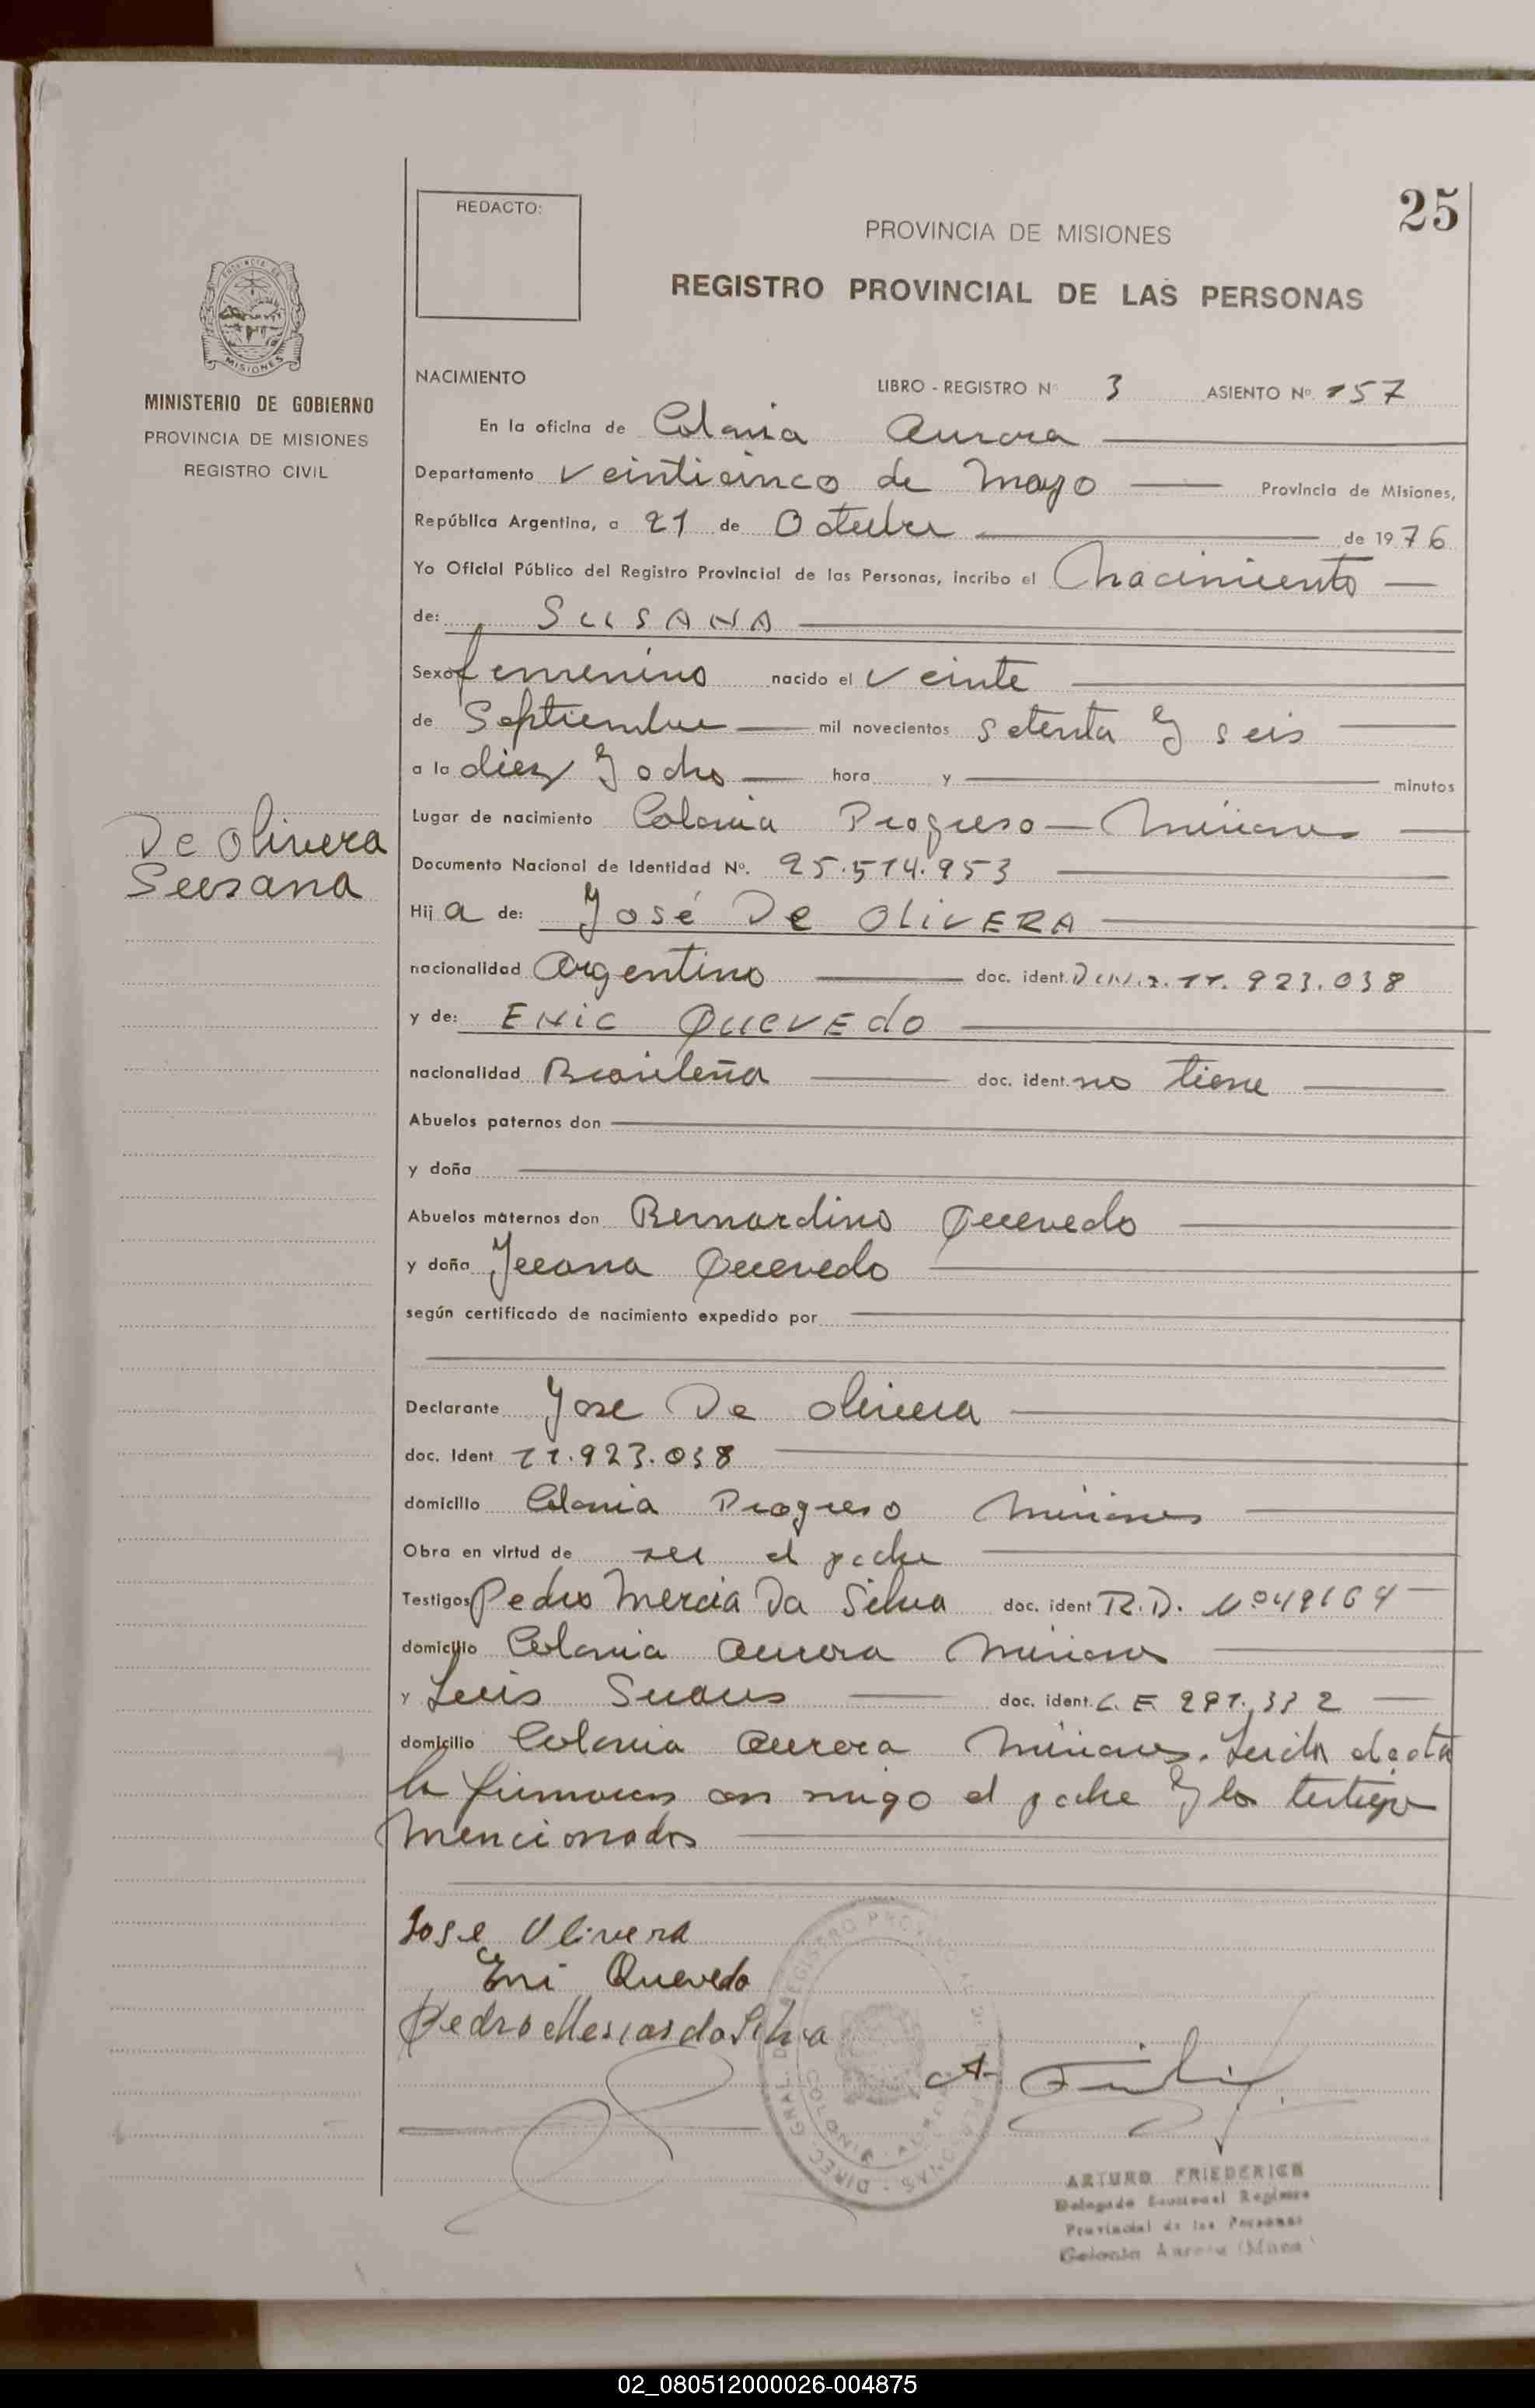 25
REDACTO:
PROVINCIA DE MISIONES
REGISTRO PROVINCIAL DE LAS PERSONAS
MISIONES
MINISTERIO DE GOBIERNO
PROVINCIA DE MISIONES
REGISTRO CIVIL
NACIMIENTO LIBRO - REGISTRO Nº 3 ASIENTO Nº 157
En la oficina de Colonia Aurora
Departamento Veinticinco de Mayo Provincia de Misiones,
República Argentina, a 21 de Octubre de 1976
Yo Oficial Público del Registro Provincial de las Personas, incribo el Nacimiento
de: SUSANA
Sexo femenino nacido el Veinte
de Septiembre mil novecientos setenta y seis
a la diez y ocho hora y minutos
Lugar de nacimiento Colonia Progreso - Misiones
De Olivera
Susana
Documento Nacional de Identidad Nº. 25.514.953
Hija de: José De OLIVERA
nacionalidad Argentino doc. ident. 11.923.038
y de: ENIC QUEVEdo
nacionalidad Brasileña doc. ident. no tiene
Abuelos paternos don
y doña
Abuelos maternos don Bernardino Quevedo
y doña Juana Quevedo
según certificado de nacimiento expedido por
Declarante Jose De Olivera
doc. Ident 11.923.038
domicilio Colonia Progreso Misiones
Obra en virtud de ser el padre
Testigos Pedro Mercia Da Silva doc. ident R.D. Nº 49164
domicilio Colonia Aurora Misiones
y Luis Suares doc. ident. C.E. 291.332
domicilio Colonia Aurora Misiones. Leida el acta
la firmaron con migo el padre y los testigos
mencionados
Jose Olivera
Eni Quevedo
Pedro Mesias da Silva
ARTURO FRIEDERICH
Delegado Seccional Registro
Provincial de las Personas
Colonia Aurora (Mnes)
02_080512000026-004875